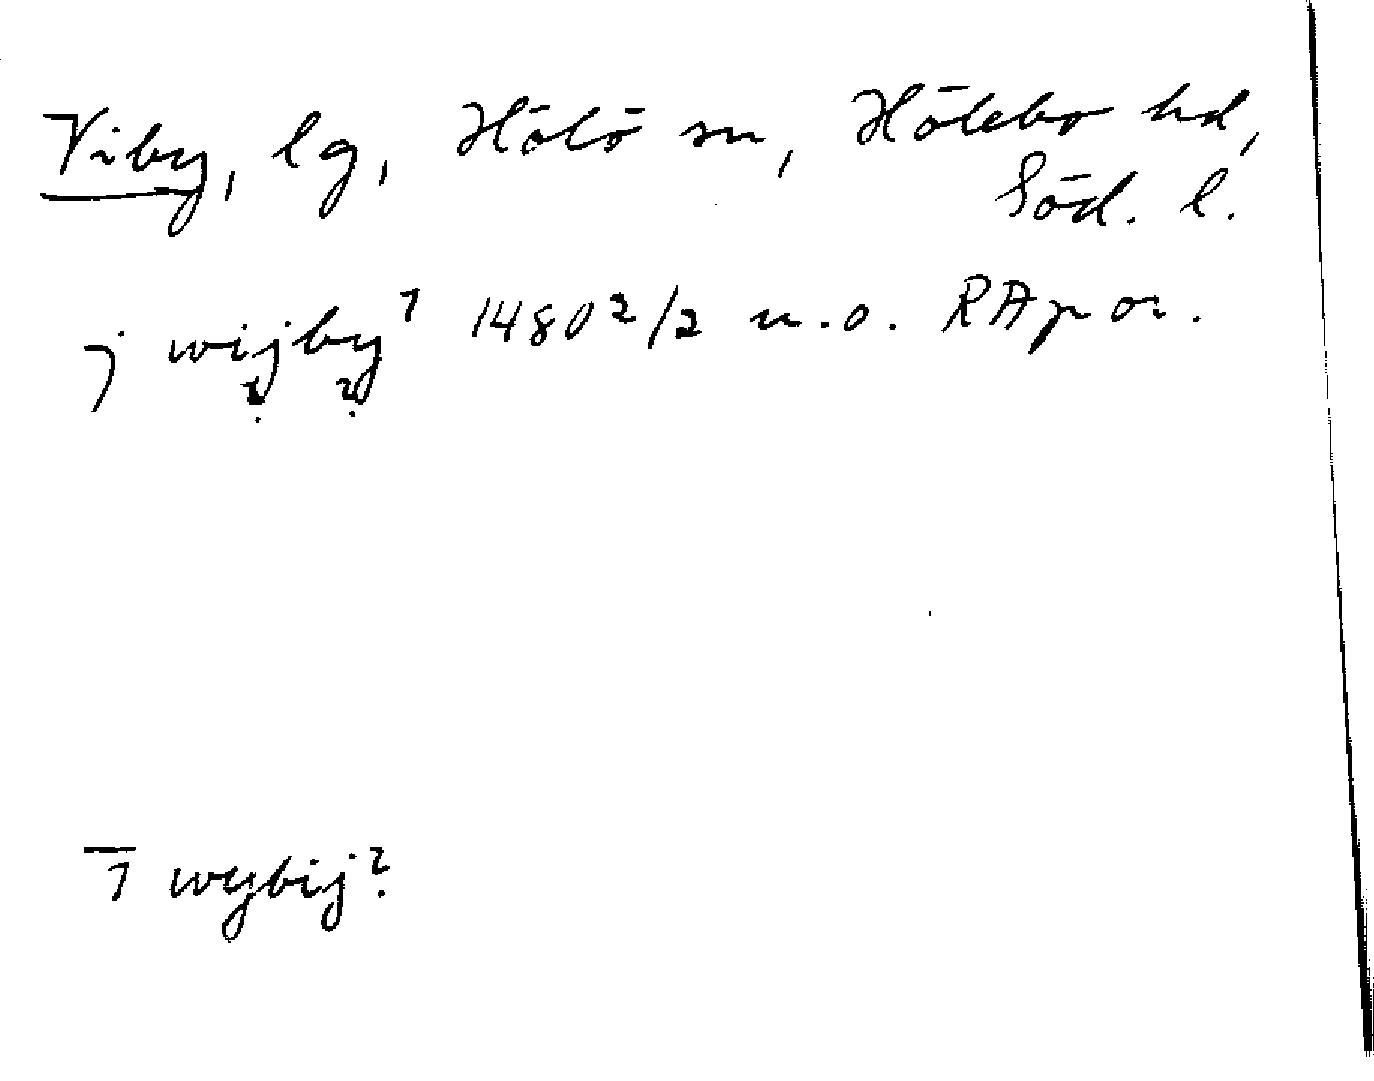 Viby, lg, Hölö sn, Hölebo hd,
Söd. l.
j wijby¹ 1480 2/2 u.o. RAp or.
? ?
1 wybij?